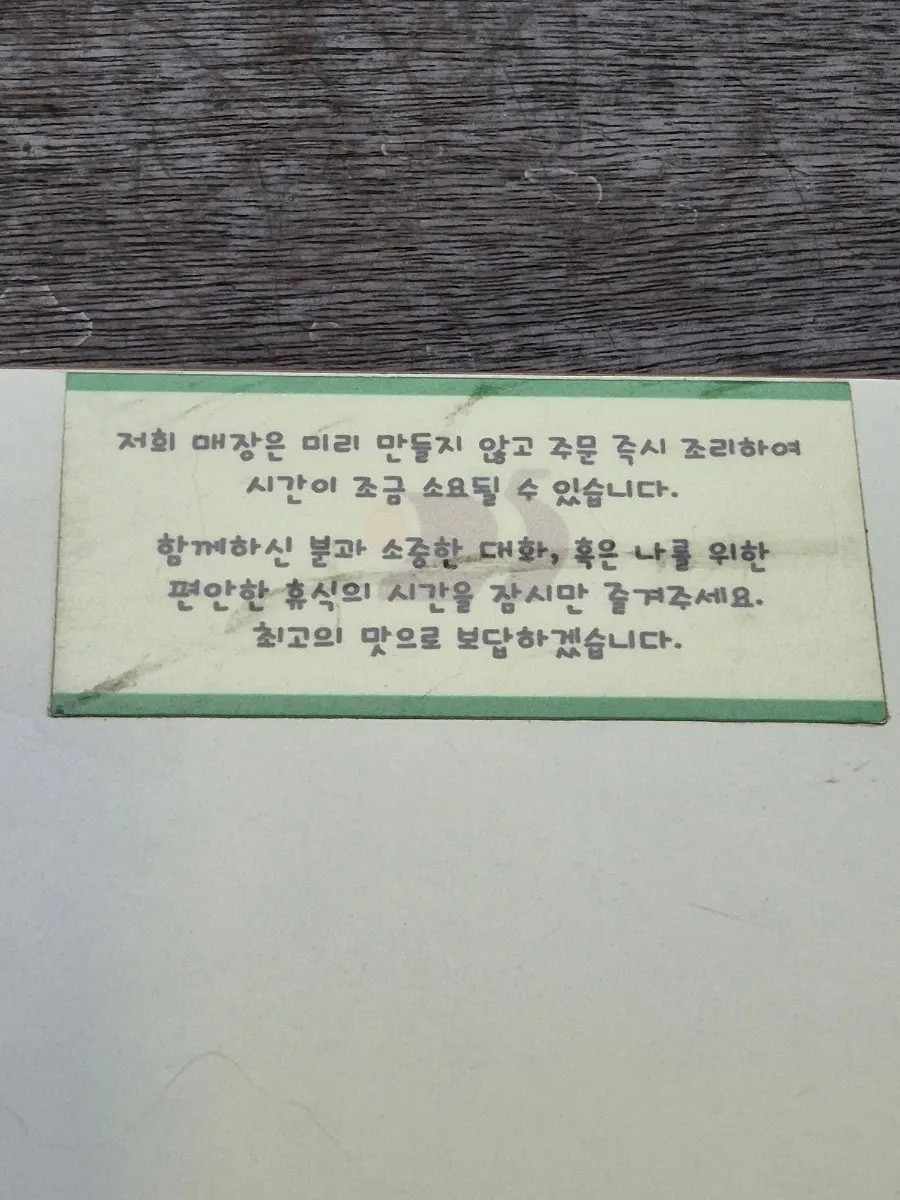 저희 매장은 미리 만들지 않고 주문 즉시 조리하여
시간이 조금 소요될 수 있습니다.
함께하신 분과 소중한 대화, 혹은 나를 위한
편안한 휴식의 시간을 잠시만 즐겨주세요.
최고의 맛으로 보답하겠습니다.